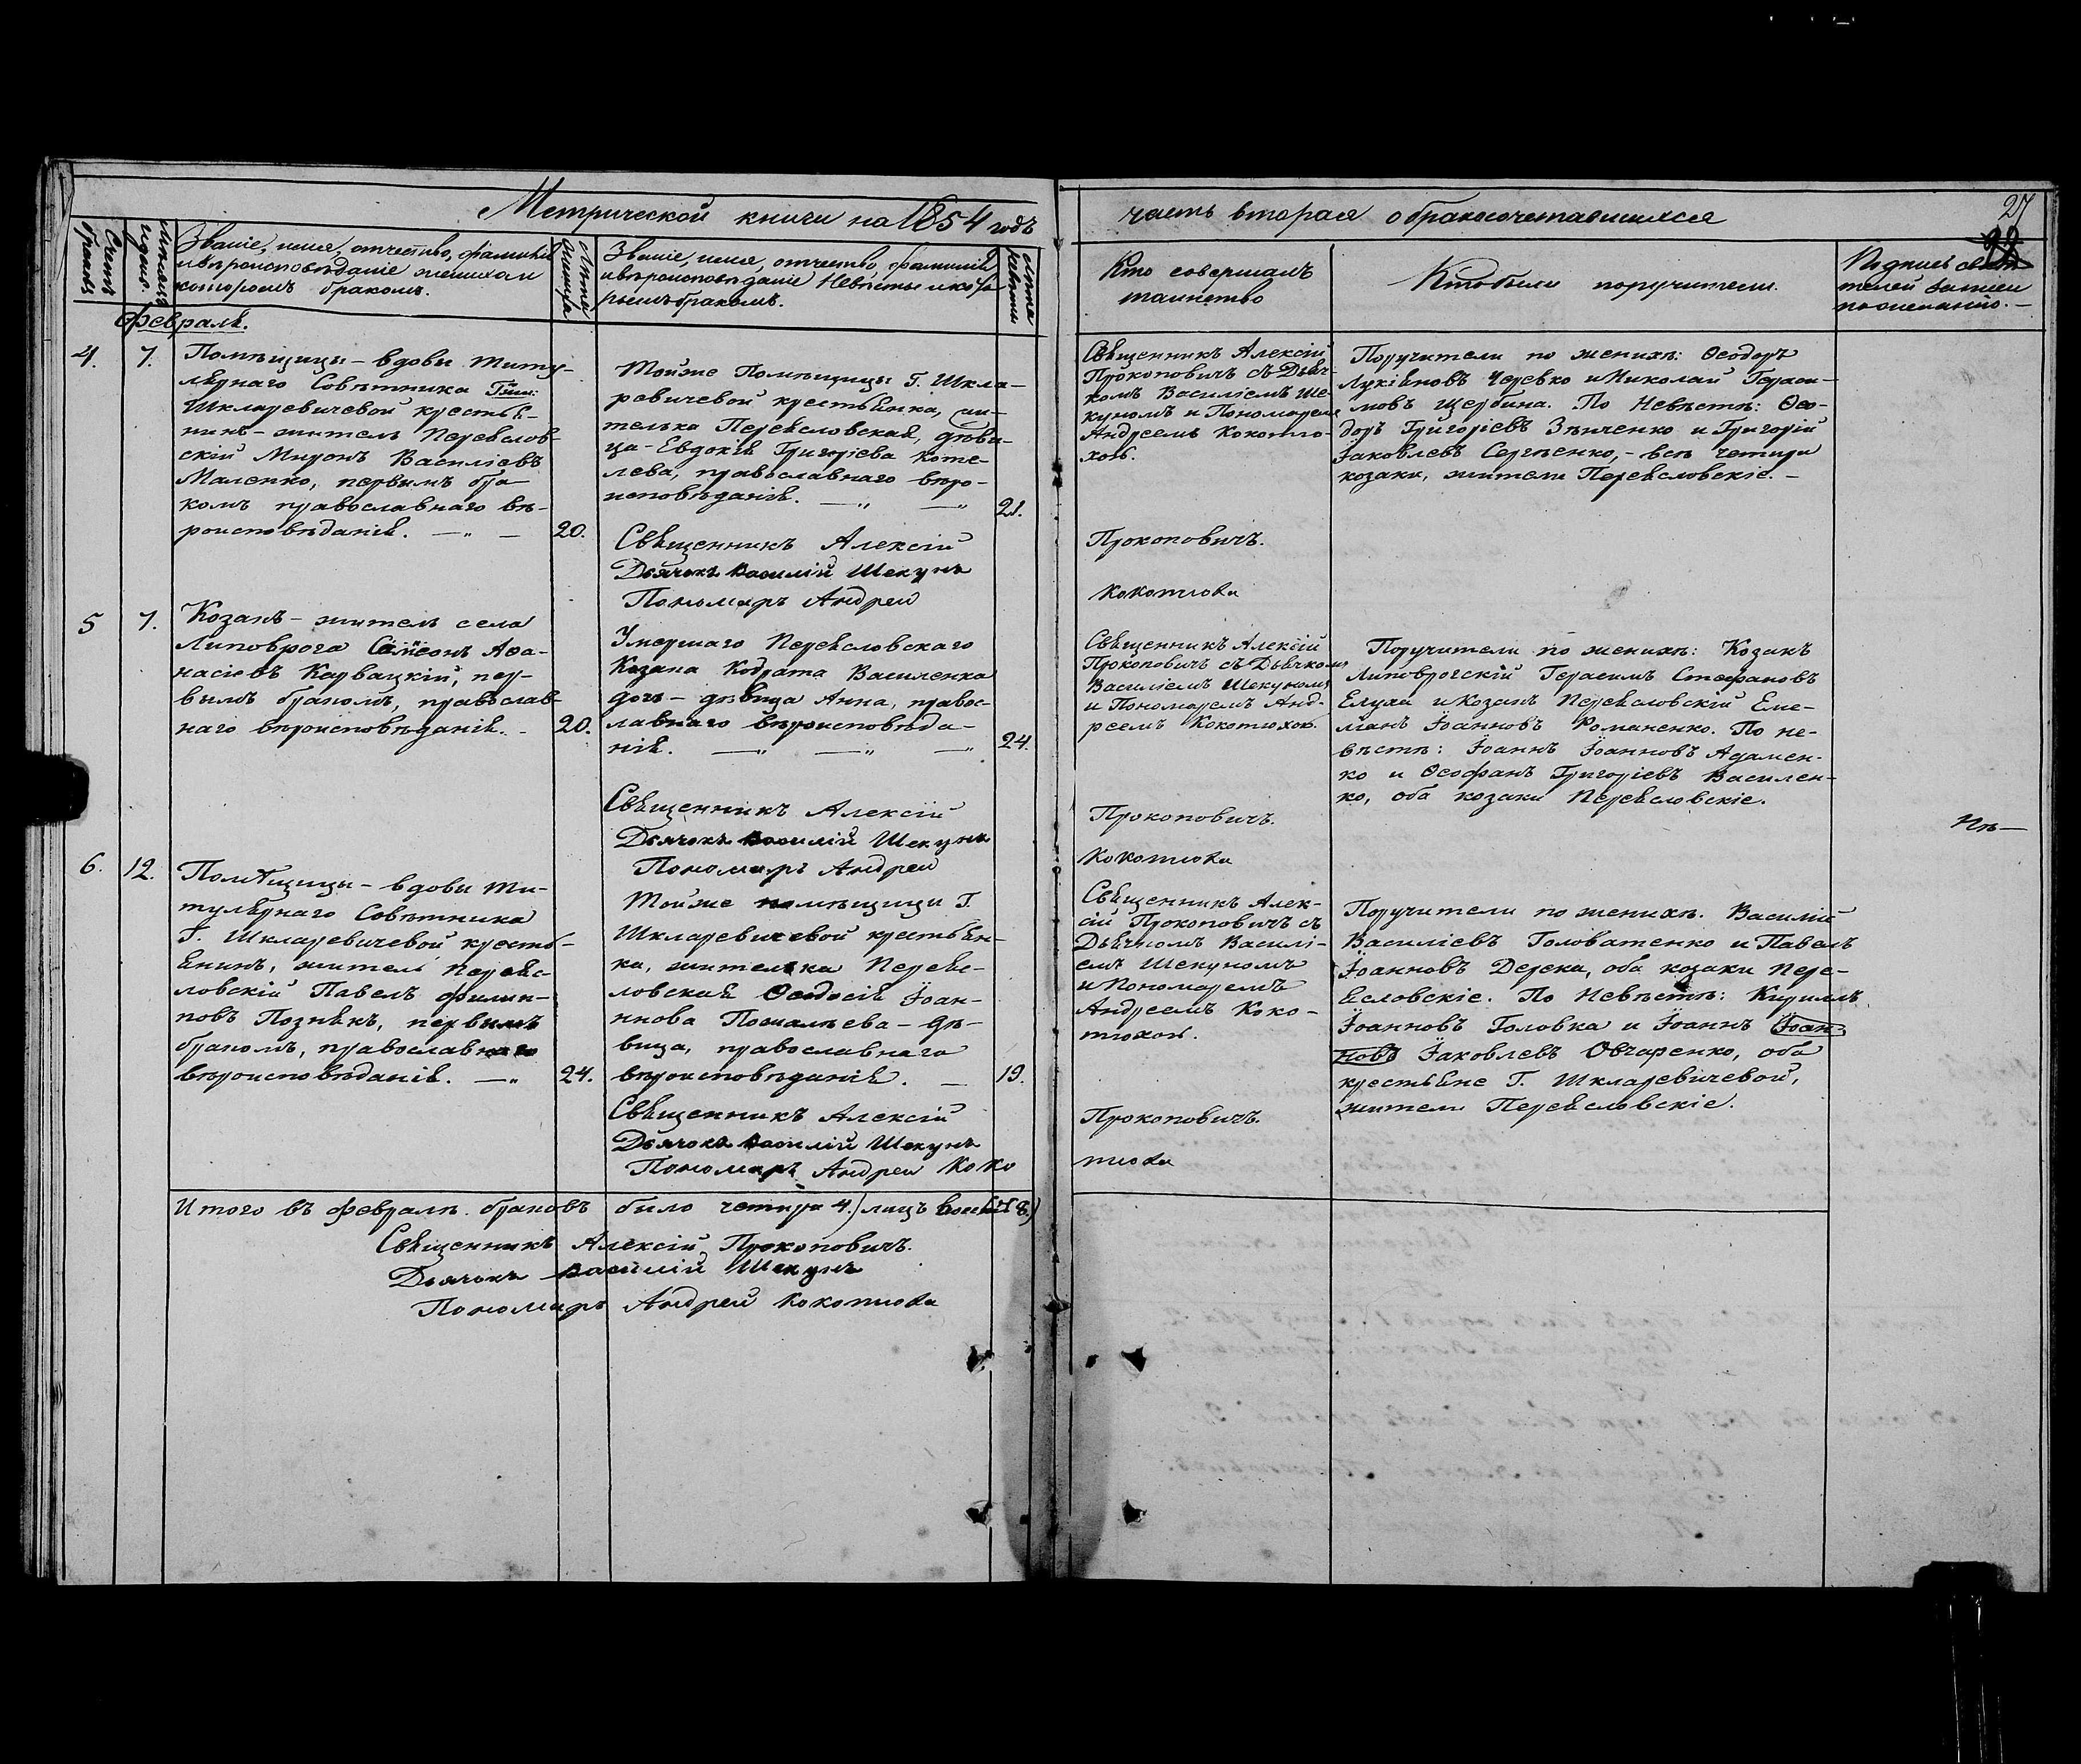 Метрической книги на 1854 годъ
часть вторая о бракосочетавшихся
27
Счетъ браковъ
Мѣсяцъ и день.
Званіе, имя, отчество, фамилія
и вѣроисповѣданіе жениха и
которымъ бракомъ.
Лѣта жениха
Званіе, имя, отчество, фамилія
и вѣроисповѣданіе Невѣсты и кото-
рымъ бракомъ.
Лѣта невѣсты
Кто совершалъ
таинство
Кто были поручители.
Подпись свидѣ-
телей записи
по желанію.
Февраля.
4. 7.
Помѣщицы - вдовы титу-
лярнаго Совѣтника
Шкляревичевой крестья-
нинъ - житель Переяслов-
скій Миронъ Василіевъ
Маленко, первымъ бра-
комъ православнаго вѣ-
роисповѣданія. 20.
Тойже Помѣщицы Г. Шкла-
ревичевой крестьянка, жи-
телька Переясловская, дѣви-
ца - Евдокія Григоріева Коте-
лева, православнаго вѣро-
исповѣданія. 21.
Священникъ Алексій
Дьячокъ Василій Шекунъ
Пономарь Андрей
Священникъ Алексій
Прокоповичъ съ Дьяч-
комъ Василіемъ Ше-
куномъ и Пономаремъ
Андреемъ Кокотю-
хою.
Прокоповичъ.
Кокотюха
Поручители по женихѣ: Ѳеодоръ
Лукіяновъ Черевко и Николай Гераси-
мовъ Щербина. По Невѣстѣ: Ѳео-
доръ Григоріевъ Зѣнченко и Григорій
Іаковлевъ Сергѣенко, - всѣ четыри
козаки, жители Переясловскіе. -
5 7.
Козакъ - житель села
Липоврога Самсонъ Аѳа-
насіовъ Карвацкій, пер-
вымъ бракомъ, православ-
наго вѣроисповѣданія. - 20.
Умершаго Переясловскаго
Козака Кодрата Василенка
дочь - дѣвица Анна, правос-
лавнаго вѣроисповѣда-
нія. 24.
Священникъ Алексій
Дьячокъ Василій Шекунъ
Пономарь Андрей
Священникъ Алексій
Прокоповичъ съ Дьячкомъ
Василіемъ Шекуномъ
и Пономаремъ Анд-
реемъ Кокотюхою.
Прокоповичъ.
Кокотюха
Поручители по женихѣ: Козакъ
Липоврогскій Герасимъ Стефановъ
Елуха и козакъ Переясловскій Еме-
лianъ Іоанновъ Романенко. По не-
вѣстѣ: Іоаннъ Іоанновъ Адамен-
ко и Ѳеофанъ Григоріевъ Василен-
ко, оба козаки Переясловскіе.
6. 12.
Помѣщицы - вдовы ти-
тулярнаго Совѣтника
Г. Шкляревичевой кресть-
янинъ, житель Переяс-
ловскій Павелъ Филип-
повъ Познякъ, первымъ
бракомъ, православнаго
вѣроисповѣданія. 24.
Тойже помѣщици Г.
Шкларевичевой крестьян-
ка, жителька Перея-
словская Ѳеодосія Іоан-
нова Пошалѣева - дѣ-
вица, православнаго
вѣроисповѣданія. 19.
Священникъ Алексій
Дьячокъ Василій Шекунъ
Пономарь Андрей Коко
Священникъ Алек-
сій Прокоповичъ съ
Дьячкомъ Василі-
емъ Шекуномъ
и Пономаремъ
Андреемъ Коко-
тюхою.
Прокоповичъ.
тюха
Поручители по женихѣ. Василій
Василіевъ Головатенко и Павелъ
Іоанновъ Дерека, оба козаки Пере-
ясловскіе. По Невѣстѣ: Кириллъ
Іоанновъ Головка и Іоаннъ Іоан-
новъ Іаковлевъ Овчаренко, оба
крестьяне Г. Шкларевичевой,
жители Переясловскіе.
Итого въ февралѣ браковъ было четыри 4.) лицъ восемь 8.)
Священникъ Алексій Прокоповичъ.
Дьячокъ Василій Шекунъ
Пономарь Андрей Кокотюха